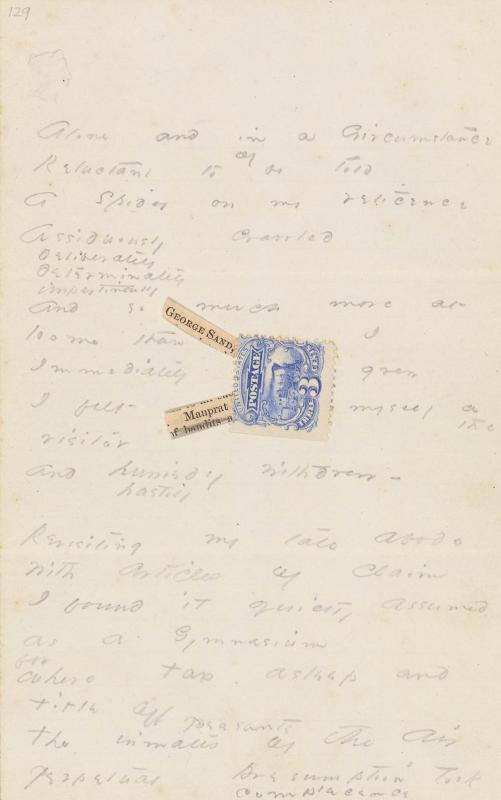 129
Alone and in a Circumstance
Reluctant to be told
of
A Spider on my reticence
Assiduously crawled
deliberately
determinately
impertinently
And so much more at
home than I
Immediately grew
I felt myself a
the
visitor
And hurriedly withdrew -
hastily
GEORGE SAND,
Mauprat
of bandits
UNITED STATES
POSTAGE
3
CENTS
Revisiting my late abode
with articles of Claim
I found it quietly assumed
as a Gymnasium
for
where tax asleep and
title off
peasants
the inmates of the Air
perpetual presumption took
complacence